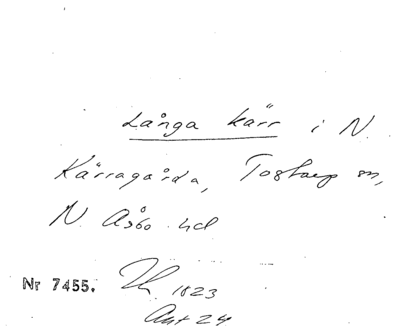 Långa kärr i N.
Kärragårda, Tostarp sn,
N. Åsbo hd
Nr 7455.
1823
Akt 24